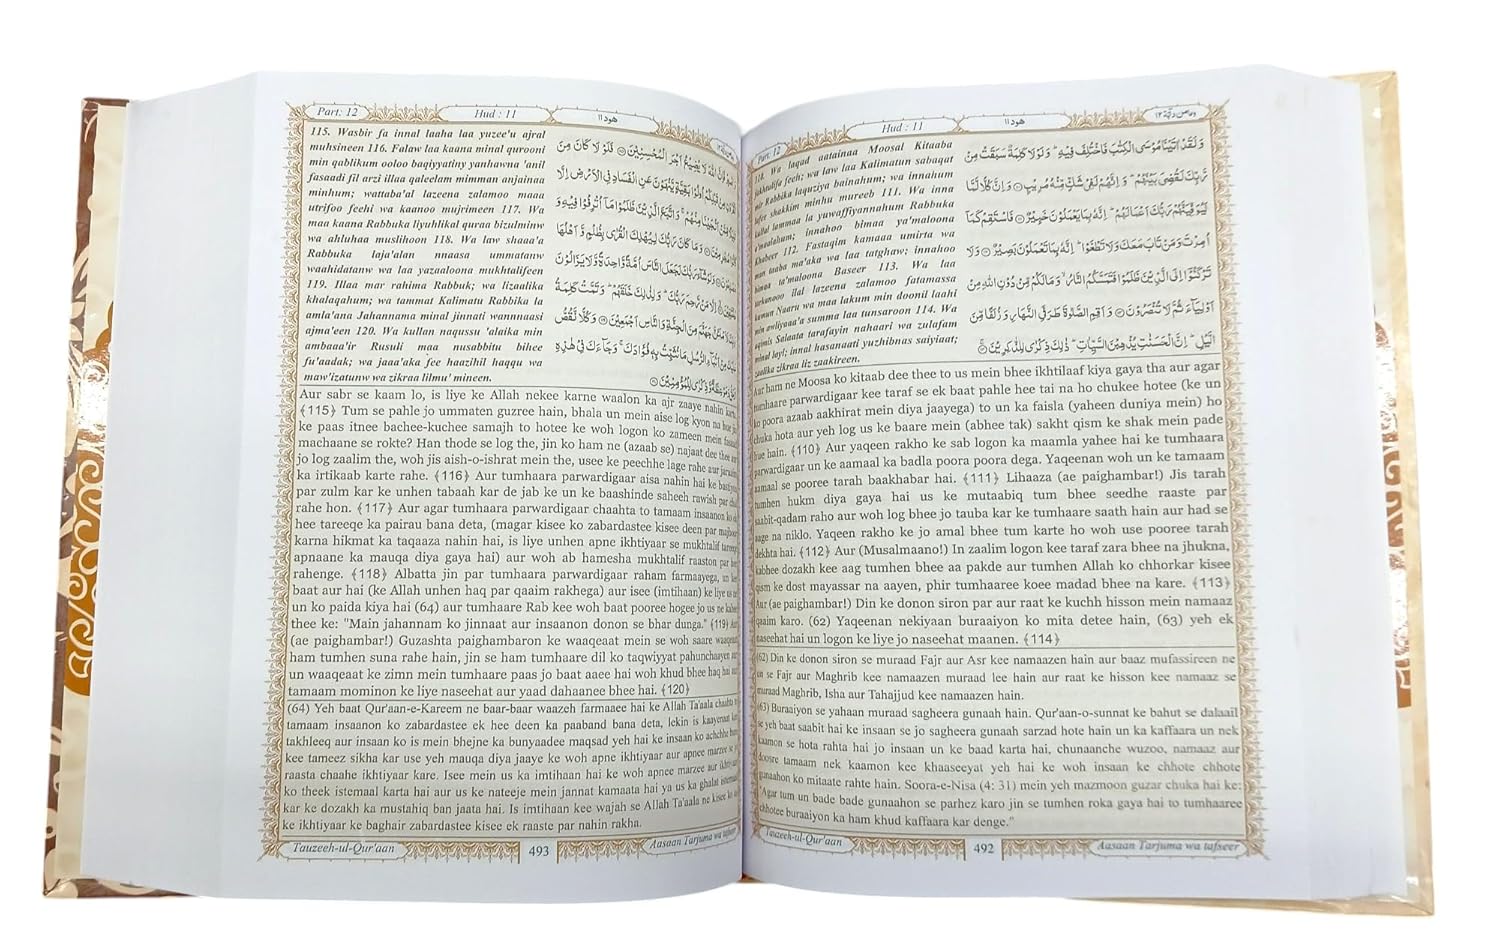 Part: 12
Hud : 11
هود ١١
وما من دآبة ١٢
114. Wa laqad aatainaa Moosal Kitaaba
fakhtulifa feeh; wa law laa Kalimatun sabaqat
mir Rabbika laquziya bainahum; wa innahum
lafee shakkim minhu mureeb 111. Wa inna
kullal lammaa la yuwaffiyannahum Rabbuka
a'maalahum; innahoo bimaa ya'maloona
Khabeer 112. Fastaqim kamaaa umirta wa
man taaba ma'aka wa laa tatghaw; innahoo
bimaa ta'maloona Baseer 113. Wa laa
tarkanooo ilal lazeena zalamoo fatamassa
kumun Naaru wa maa lakum min doonil laahi
min awliyaaa'a summa laa tunsaroon 114. Wa
aqimis Salaata tarafayin nahaari wa zulafam
minal layl; innal hasanaati yuzhibnas saiyiaat;
zaalika zikraa liz zaakireen.
وَلَقَدْ اٰتَيْنَا مُوْسَى الْكِتٰبَ فَاخْتُلِفَ فِيْهِ ؕ وَلَوْ لَا كَلِمَةٌ سَبَقَتْ مِنْ
رَّبِّكَ لَقُضِىَ بَيْنَهُمْ ؕ وَاِنَّهُمْ لَفِىْ شَكٍّ مِّنْهُ مُرِيْبٍ ۝ وَاِنَّ كُلًّا لَّمَّا
لَيُوَفِّيَنَّهُمْ رَبُّكَ اَعْمَالَهُمْ ؕ اِنَّهٗ بِمَا يَعْمَلُوْنَ خَبِيْرٌ ۝ فَاسْتَقِمْ كَمَآ
اُمِرْتَ وَمَنْ تَابَ مَعَكَ وَلَا تَطْغَوْا ؕ اِنَّهٗ بِمَا تَعْمَلُوْنَ بَصِيْرٌ ۝ وَلَا
تَرْكَنُوْٓا اِلَى الَّذِيْنَ ظَلَمُوْا فَتَمَسَّكُمُ النَّارُ ۙ وَمَا لَكُمْ مِّنْ دُوْنِ اللّٰهِ مِنْ
اَوْلِيَآءَ ثُمَّ لَا تُنْصَرُوْنَ ۝ وَاَقِمِ الصَّلٰوةَ طَرَفَىِ النَّهَارِ وَزُلَفًا مِّنَ
الَّيْلِ ؕ اِنَّ الْحَسَنٰتِ يُذْهِبْنَ السَّيِّاٰتِ ؕ ذٰلِكَ ذِكْرٰى لِلذّٰكِرِيْنَ ۝
Aur ham ne Moosa ko kitaab dee thee to us mein bhee ikhtilaaf kiya gaya tha aur agar
tumhaare parwardigaar kee taraf se ek baat pahle hee tai na ho chukee hotee (ke un
ko poora azaab aakhirat mein diya jaayega) to un ka faisla (yaheen duniya mein) ho
chuka hota aur yeh log us ke baare mein (abhee tak) sakht qism ke shak mein pade
hue hain. {110} Aur yaqeen rakho ke sab logon ka maamla yahee hai ke tumhaara
parwardigaar un ke aamaal ka badla poora poora dega. Yaqeenan woh un ke tamaam
aamaal se pooree tarah baakhabar hai. {111} Lihaaza (ae paighambar!) Jis tarah
tumhen hukm diya gaya hai us ke mutaabiq tum bhee seedhe raaste par
saabit-qadam raho aur woh log bhee jo tauba kar ke tumhaare saath hain aur had se
aage na niklo. Yaqeen rakho ke jo amal bhee tum karte ho woh use pooree tarah
dekhta hai. {112} Aur (Musalmaano!) In zaalim logon kee taraf zara bhee na jhukna,
kabhee dozakh kee aag tumhen bhee aa pakde aur tumhen Allah ko chhorkar kisee
qism ke dost mayassar na aayen, phir tumhaaree koee madad bhee na kare. {113}
Aur (ae paighambar!) Din ke donon siron par aur raat ke kuchh hisson mein namaaz
qaaim karo. (62) Yaqeenan nekiyaan buraaiyon ko mita detee hain, (63) yeh ek
naseehat hai un logon ke liye jo naseehat maanen. {114}
(62) Din ke donon siron se muraad Fajr aur Asr kee namaazen hain aur baaz mufassireen ne
un se Fajr aur Maghrib kee namaazen muraad lee hain aur raat ke hisson kee namaaz se
muraad Maghrib, Isha aur Tahajjud kee namaazen hain.
(63) Buraaiyon se yahaan muraad sagheera gunaah hain. Qur'aan-o-sunnat ke bahut se dalaail
se yeh baat saabit hai ke insaan se jo sagheera gunaah sarzad hote hain un ka kaffaara un nek
kaamon se hota rahta hai jo insaan un ke baad karta hai, chunaanche wuzoo, namaaz aur
doosre tamaam nek kaamon kee khaaseeyat yeh hai ke woh insaan ke chhote chhote
gunaahon ko mitaate rahte hain. Soora-e-Nisa (4: 31) mein yeh mazmoon guzar chuka hai ke:
"Agar tum un bade bade gunaahon se parhez karo jin se tumhen roka gaya hai to tumhaaree
chhotee buraaiyon ka ham khud kaffaara kar denge."
Tauzeeh-ul-Qur'aan
492
Aasaan Tarjuma wa tafseer
Part: 12
Hud : 11
هود ١١
115. Wasbir fa innal laaha laa yuzee'u ajral
muhsineen 116. Falaw laa kaana minal qurooni
min qablikum ooloo baqiyyatiny yanhawna 'anil
fasaadi fil arzi illaa qaleelam mimman anjainaa
minhum; wattaba'al lazeena zalamoo maaa
utrifoo feehi wa kaanoo mujrimeen 117. Wa
maa kaana Rabbuka liyuhlikal quraa bizulminw
wa ahluhaa muslihoon 118. Wa law shaaa'a
Rabbuka laja'alan nnaasa ummatanw
waahidatanw wa laa yazaaloona mukhtalifeen
119. Illaa mar rahima Rabbuk; wa lizaalika
khalaqahum; wa tammat Kalimatu Rabbika la
amla'ana Jahannama minal jinnati wannnaasi
ajma'een 120. Wa kullan naqussu 'alaika min
ambaaa'ir Rusuli maa nusabbitu bihee
fu'aadak; wa jaaa'aka fee haazihil haqqu wa
maw'izatunw wa zikraa lilmu' mineen.
فَاِنَّ اللّٰهَ لَا يُضِيْعُ اَجْرَ الْمُحْسِنِيْنَ ۝ فَلَوْ لَا كَانَ مِنَ
الْقُرُوْنِ مِنْ قَبْلِكُمْ اُولُوْا بَقِيَّةٍ يَّنْهَوْنَ عَنِ الْفَسَادِ فِى الْاَرْضِ اِلَّا
قَلِيْلًا مِّمَّنْ اَنْجَيْنَا مِنْهُمْ ۚ وَاتَّبَعَ الَّذِيْنَ ظَلَمُوْا مَآ اُتْرِفُوْا فِيْهِ وَ
كَانُوْا مُجْرِمِيْنَ ۝ وَمَا كَانَ رَبُّكَ لِيُهْلِكَ الْقُرٰى بِظُلْمٍ وَّاَهْلُهَا
مُصْلِحُوْنَ ۝ وَلَوْ شَآءَ رَبُّكَ لَجَعَلَ النَّاسَ اُمَّةً وَّاحِدَةً وَّلَا يَزَالُوْنَ
مُخْتَلِفِيْنَ ۝ اِلَّا مَنْ رَّحِمَ رَبُّكَ ؕ وَلِذٰلِكَ خَلَقَهُمْ ؕ وَتَمَّتْ كَلِمَةُ
رَبِّكَ لَاَمْلَئَنَّ جَهَنَّمَ مِنَ الْجِنَّةِ وَالنَّاسِ اَجْمَعِيْنَ ۝ وَكُلًّا نَّقُصُّ
عَلَيْكَ مِنْ اَنْۢبَآءِ الرُّسُلِ مَا نُثَبِّتُ بِهٖ فُؤَادَكَ ۚ وَجَآءَكَ فِىْ هٰذِهِ
الْحَقُّ وَمَوْعِظَةٌ وَّذِكْرٰى لِلْمُؤْمِنِيْنَ ۝
Aur sabr se kaam lo, is liye ke Allah nekee karne waalon ka ajr zaaye nahin karta.
{115} Tum se pahle jo ummaten guzree hain, bhala un mein aise log kyon na hue jin
ke paas itnee bachee-kuchee samajh to hotee ke woh logon ko zameen mein fasaad
machaane se rokte? Han thode se log the, jin ko ham ne (azaab se) najaat dee thee aur
jo log zaalim the, woh jis aish-o-ishrat mein the, usee ke peechhe lage rahe aur jaraaim
ka irtikaab karte rahe. {116} Aur tumhaara parwardigaar aisa nahin hai ke bastiyon
par zulm kar ke unhen tabaah kar de jab ke un ke baashinde saheeh rawish par chal
rahe hon. {117} Aur agar tumhaara parwardigaar chaahta to tamaam insaanon ko ek
hee tareeqe ka pairau bana deta, (magar kisee ko zabardastee kisee deen par majboor
karna hikmat ka taqaaza nahin hai, is liye unhen apne ikhtiyaar se mukhtalif tareeqe
apnaane ka mauqa diya gaya hai) aur woh ab hamesha mukhtalif raaston par hee
rahenge. {118} Albatta jin par tumhaara parwardigaar raham farmaayega, un kee
baat aur hai (ke Allah unhen haq par qaaim rakhega) aur isee (imtihaan) ke liye us ne
un ko paida kiya hai (64) aur tumhaare Rab kee woh baat pooree hogee jo us ne kahee
thee ke: "Main jahannam ko jinnaat aur insaanon donon se bhar dunga." {119} Aur
(ae paighambar!) Guzashta paighambaron ke waaqeaat mein se woh saare waaqeaat
ham tumhen suna rahe hain, jin se ham tumhaare dil ko taqwiyyat pahunchaayen aur
un waaqeaat ke zimn mein tumhaare paas jo baat aaee hai woh khud bhee haq hai aur
tamaam mominon ke liye naseehat aur yaad dahaanee bhee hai. {120}
(64) Yeh baat Qur'aan-e-Kareem ne baar-baar waazeh farmaaee hai ke Allah Ta'aala chaahta to
tamaam insaanon ko zabardastee ek hee deen ka paaband bana deta, lekin is kaayenaat kee
takhleeq aur insaan ko is mein bhejne ka bunyaadee maqsad yeh hai ke insaan ko achchhe bure
kee tameez sikha kar use yeh mauqa diya jaaye ke woh apne ikhtiyaar aur apnee marzee se jo
raasta chaahe ikhtiyaar kare. Isee mein us ka imtihaan hai ke woh apnee marzee aur ikhtiyaar
ko theek istemaal karta hai aur us ke nateeje mein jannat kamaata hai ya us ka ghalat istemaal
kar ke dozakh ka mustahiq ban jaata hai. Is imtihaan kee wajah se Allah Ta'aala ne kisee ko us
ke ikhtiyaar ke baghair zabardastee kisee ek raaste par nahin rakha.
Tauzeeh-ul-Qur'aan
493
Aasaan Tarjuma wa tafseer